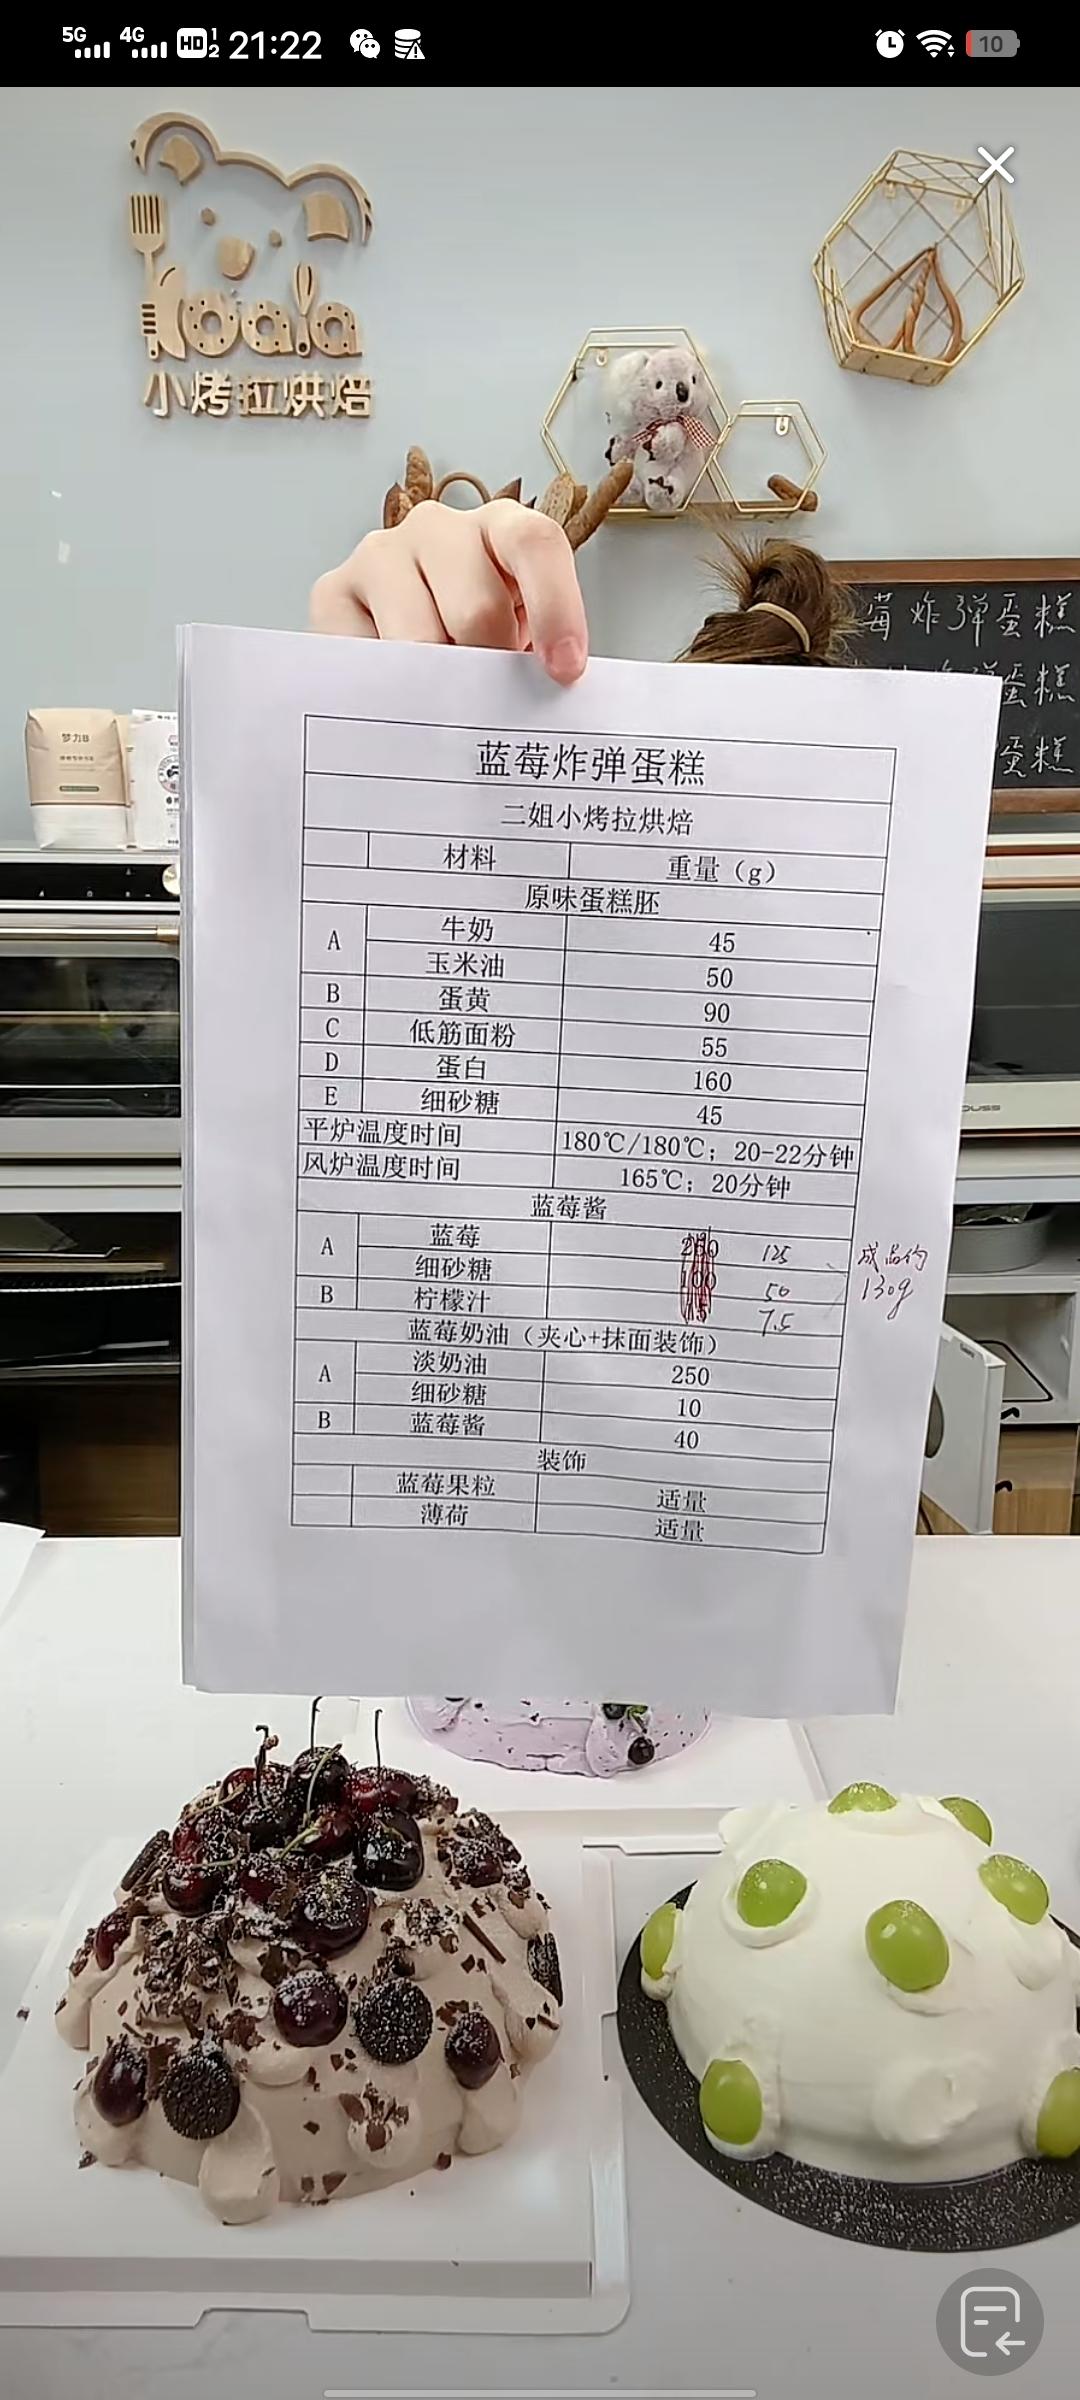 5G 4G HD 1 2 21:22 10
Koala
小烤拉烘焙
莓炸弹蛋糕
蛋糕
蛋糕
梦力B
蓝莓炸弹蛋糕
二姐小烤拉烘焙
材料 重量（g）
原味蛋糕胚
A 牛奶 45
玉米油 50
B 蛋黄 90
C 低筋面粉 55
D 蛋白 160
E 细砂糖 45
平炉温度时间 180℃/180℃；20-22分钟
风炉温度时间 165℃；20分钟
蓝莓酱
A 蓝莓 250 125 成品约
细砂糖 100 50 130g
B 柠檬汁 15 7.5
蓝莓奶油（夹心+抹面装饰）
A 淡奶油 250
细砂糖 10
B 蓝莓酱 40
装饰
蓝莓果粒 适量
薄荷 适量